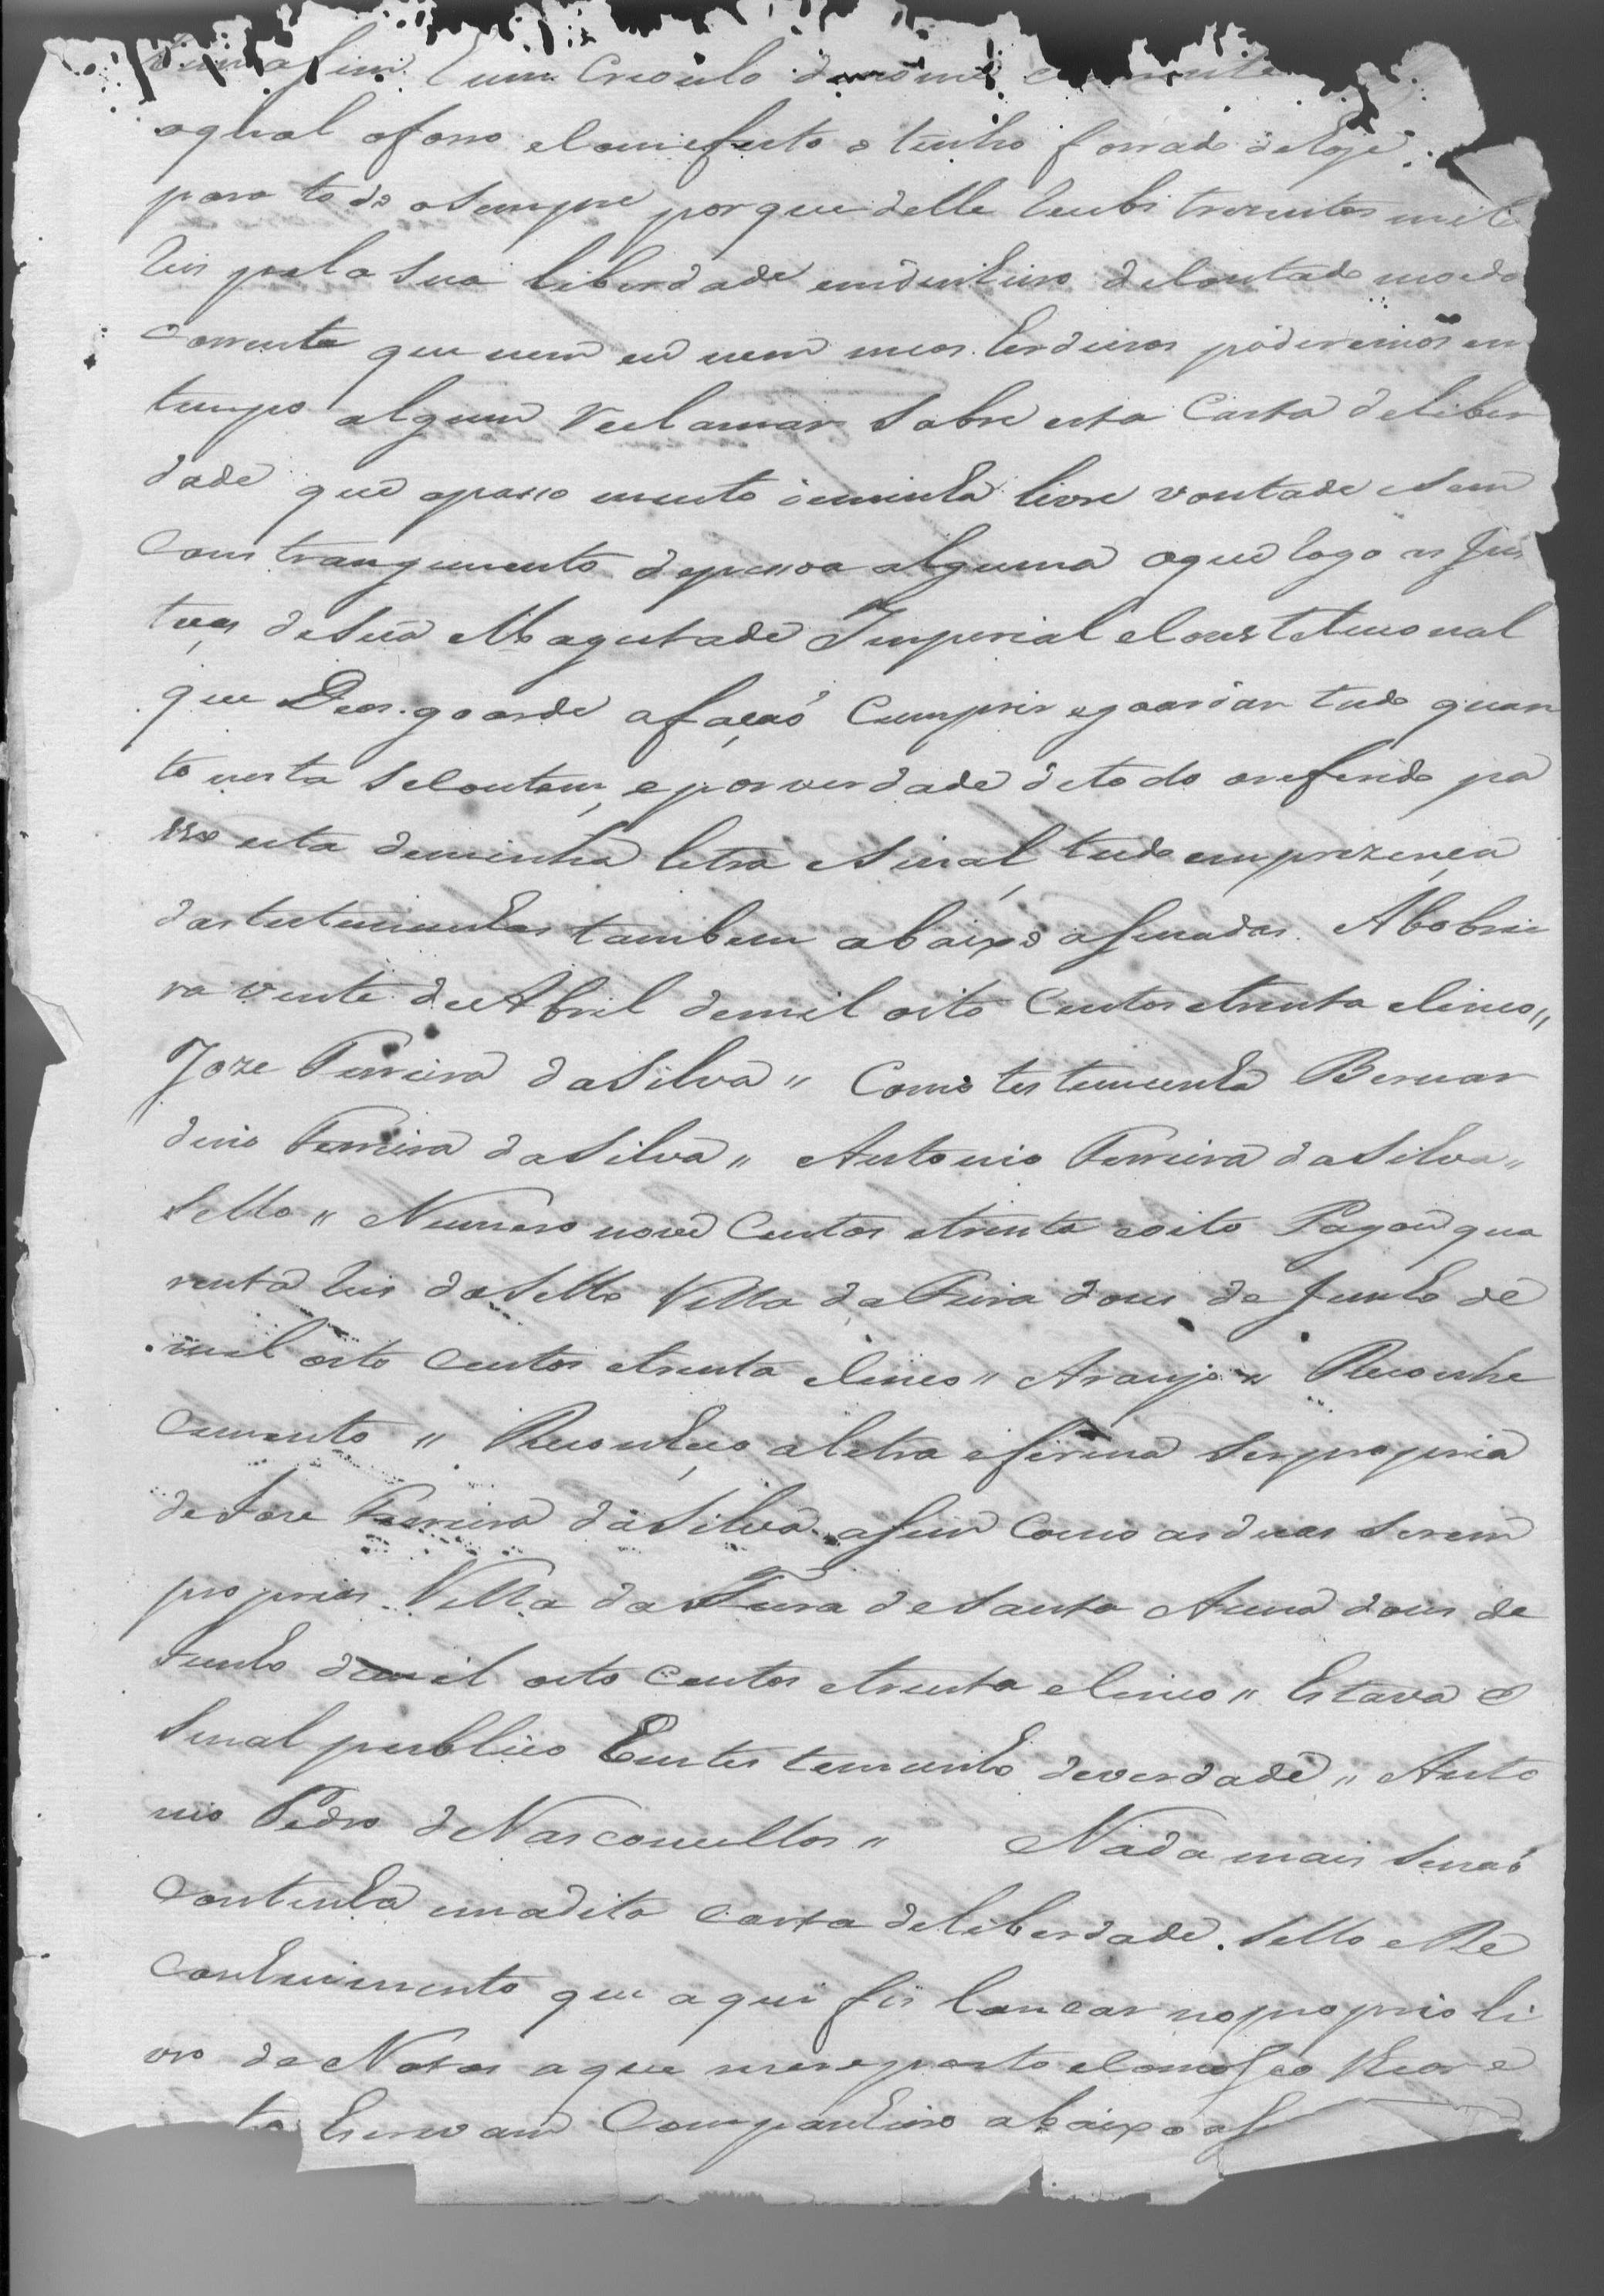 hum Creoulo de nome
oqual oforro ecomefeito o tenho forrado deloje
para todo osempre porque delle recebi trezentos mil
reis pela sua liberdade emdinheiro decontado moeda
corrente que nem eu nem meos Erdeiros poderemos em
tempo algum reclamar sobre esta Carta deliber
dade que apasso muito deminha livre vontade esem
constrangimento depessoa alguma oque logo as Jus
tiças deSua Magestade Imperial eConstetucional
que Deos goarde afação Cumprir egoardar tudo quan
to nesta secontem, eporverdade detodo oreferido pa
sso esta deminha letra esinal tudo emprezença
dastestemunhas tambem abaixo asinadas. Abobrei
ra vinte deAbril demil oito Centos etrinta ecinco"
Joze Ferreira daSilva" Como testemunha Bernar
dino Ferreira daSilva" Antonio Ferreira daSilva"
Sello" Numero nove Centos etrinta eoito Pagou qua
renta reis doSello Villa daFeira dous de Junho de
mil oito Centos etrinta ecinco" Araujo" Reconhe
cimento" Reconheço aletra efirma serpropria
deJoze Ferreira daSilva asim como asduas serem
proprias Villa daFeira deSanta Anna dous de
Junho demil oito centos etrinta ecinco" Estava o
Sinal publico Emtestemunho deverdade" Anto
nio Pedro deVasconcellos" Nada mais senaõ
continha emadita carta deliberdade. Sello eRe
conhecimento que aqui fis lancar noproprio li
vro deNotas aque mereporto ecomoseo
Escrivam Companheiro abaixo as